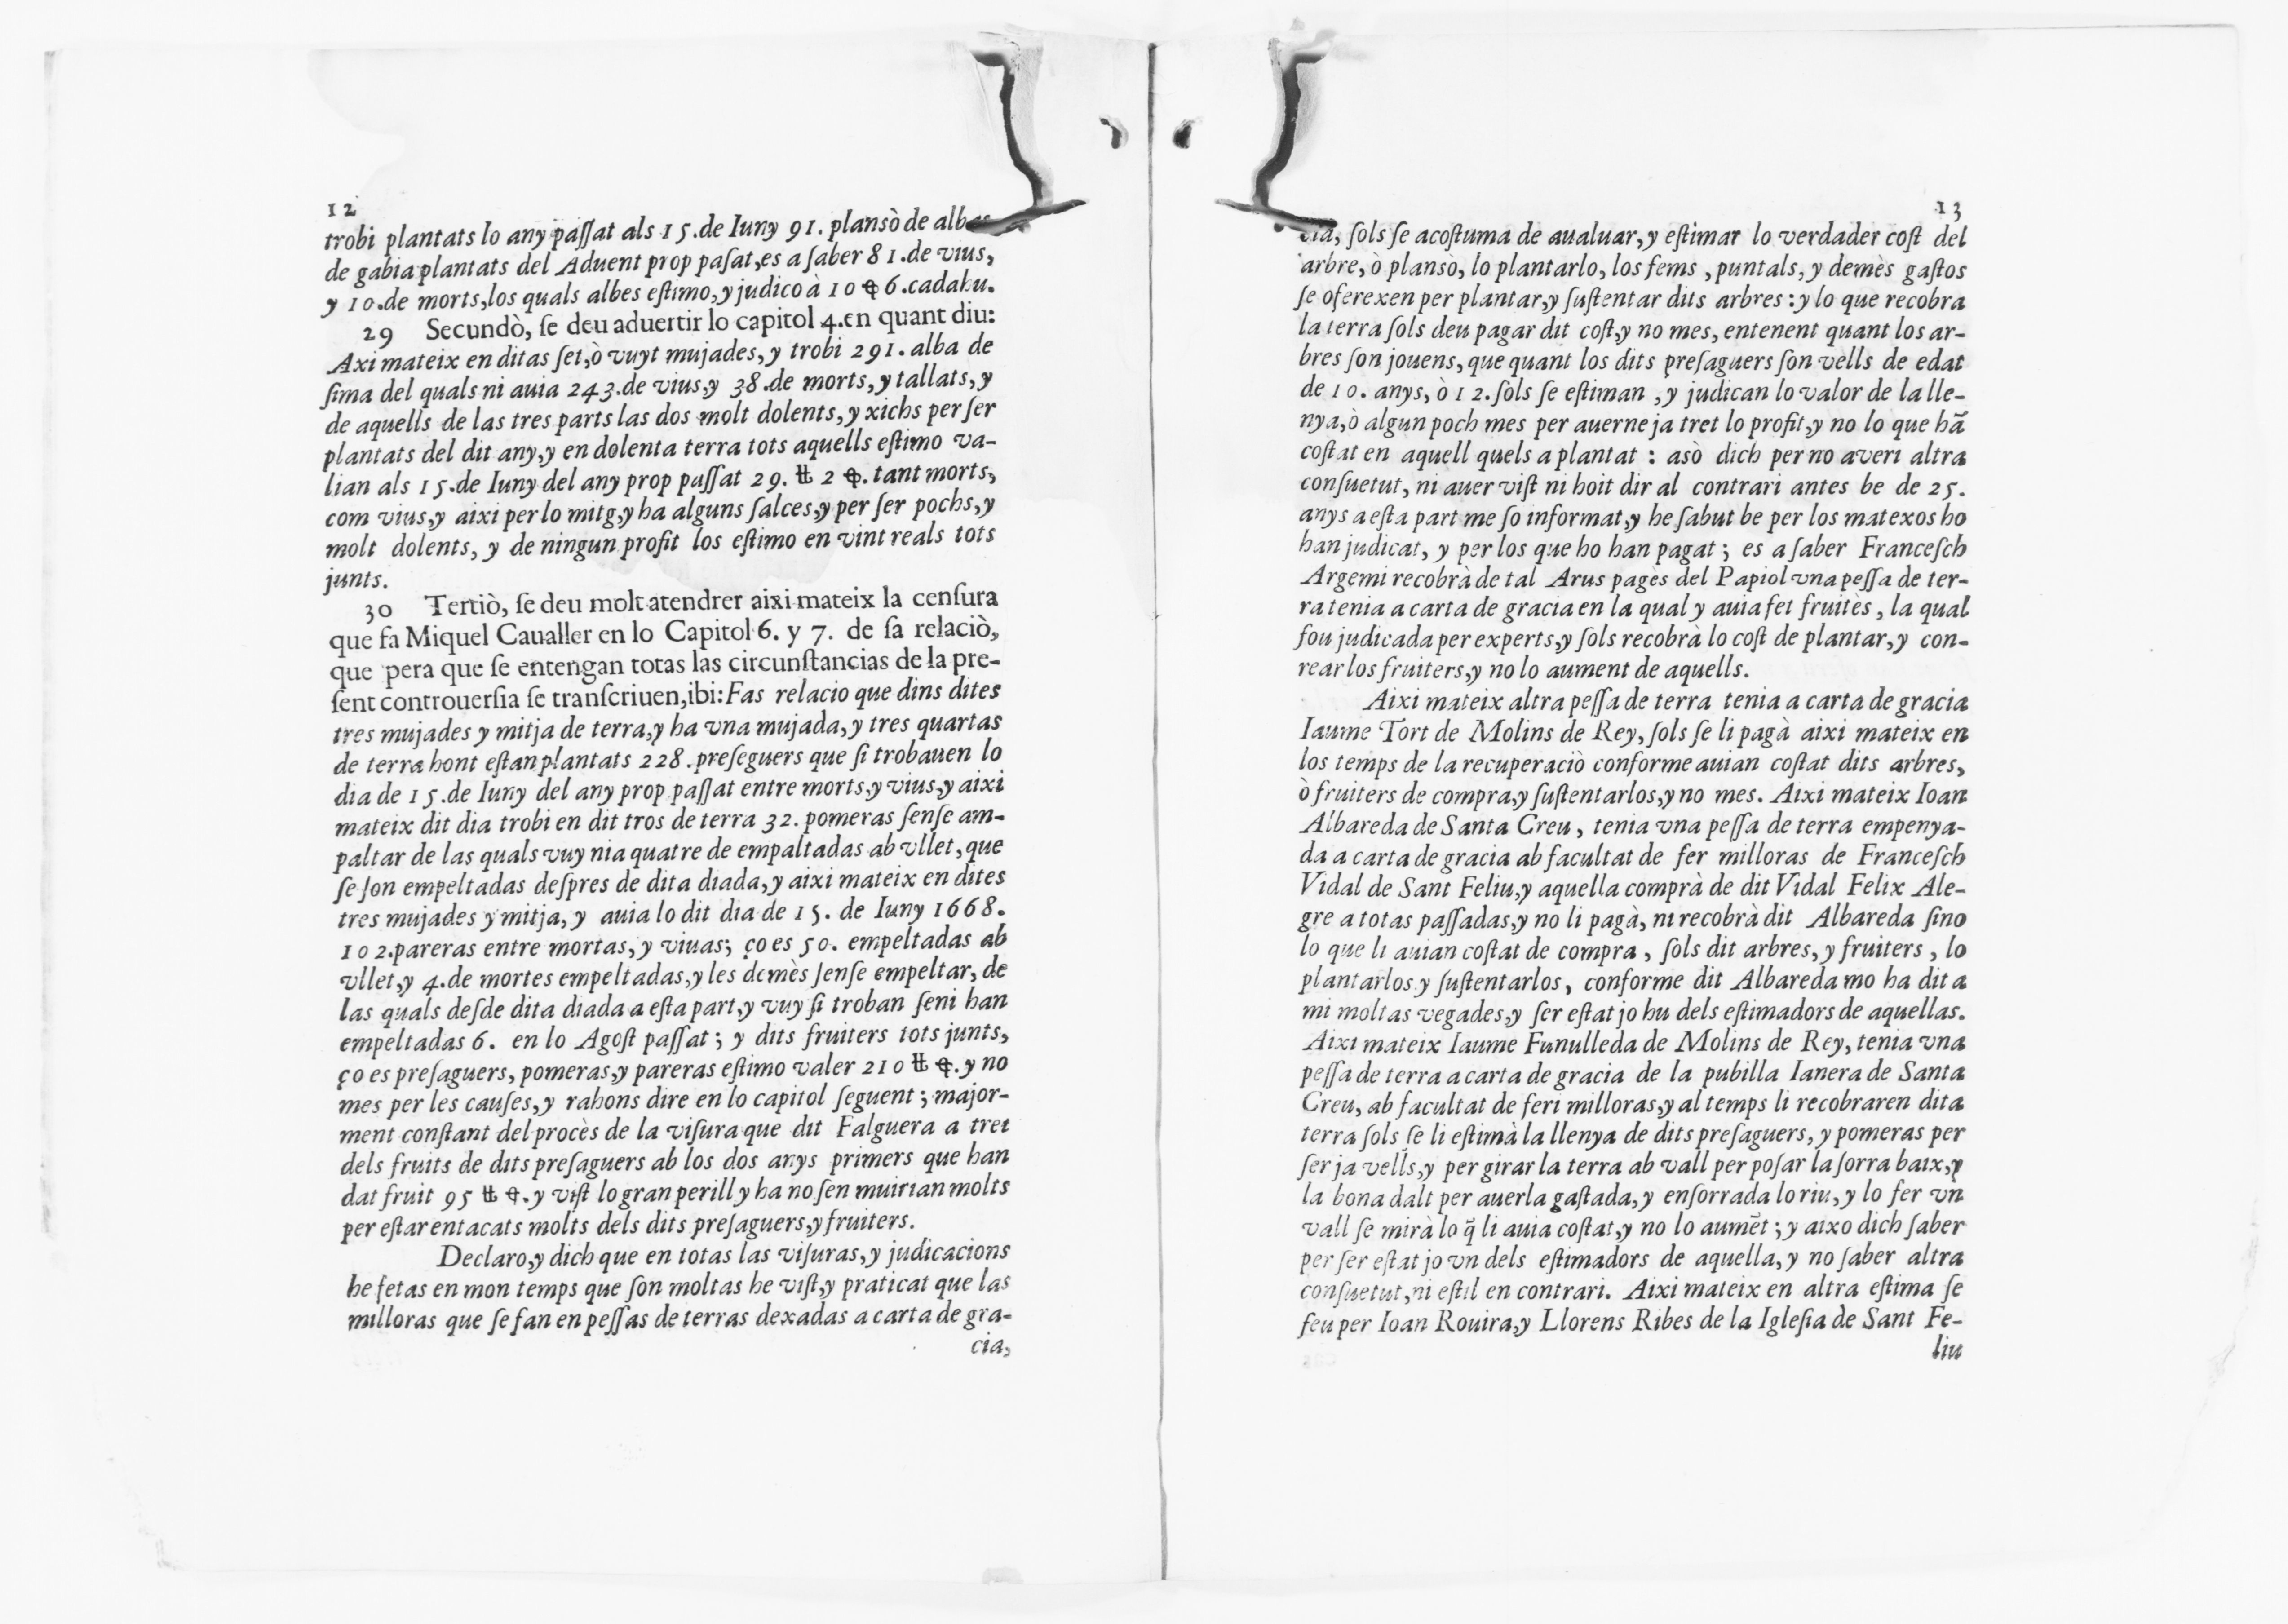 12
trobi plantats lo any paſſat als 15.de Iuny 91. plansò de albes
de gabia plantats del Aduent prop paſat,es a ſaber 81.de vius,
y 10.de morts,los quals albes eſtimo,y judico à 10 ꝯ 6.cadahu.
29 Secundò, ſe deu aduertir lo capitol 4.en quant diu:
Axi mateix en ditas ſet,ò vuyt mujades,y trobi 291.alba de
ſima del quals ni auia 243.de vius,y 38.de morts,y tallats,y
de aquells de las tres parts las dos molt dolents,y xichs per ſer
plantats del dit any,y en dolenta terra tots aquells eſtimo va-
lian als 15.de Iuny del any prop paſſat 29. ℔ 2 ꝯ. tant morts,
com vius,y aixi per lo mitg,y ha alguns ſalces,y per ſer pochs,y
molt dolents, y de ningun profit los eſtimo en vint reals tots
junts.
30 Tertiò, ſe deu molt atendrer aixi mateix la cenſura
que fa Miquel Caualler en lo Capitol 6. y 7. de ſa relaciò,
que pera que ſe entengan totas las circunſtancias de la pre-
ſent controuerſia ſe tranſcriuen,ibi:Fas relacio que dins dites
tres mujades y mitja de terra,y ha vna mujada,y tres quartas
de terra hont eſtan plantats 228.preſeguers que ſi trobauen lo
dia de 15.de Iuny del any prop paſſat entre morts,y vius,y aixi
mateix dit dia trobi en dit tros de terra 32. pomeras ſenſe am-
paltar de las quals vuy nia quatre de empaltadas ab vllet,que
ſe ſon empeltadas deſpres de dita diada,y aixi mateix en dites
tres mujades y mitja, y auia lo dit dia de 15. de Iuny 1668.
102.pareras entre mortas,y viuas; ço es 50. empeltadas ab
vllet,y 4.de mortes empeltadas,y les demès ſenſe empeltar, de
las quals deſde dita diada a eſta part,y vuy ſi troban ſeni han
empeltadas 6. en lo Agoſt paſſat; y dits fruiters tots junts,
ço es preſaguers,pomeras,y pareras eſtimo valer 210 ℔ ꝯ.y no
mes per les cauſes,y rahons dire en lo capitol ſeguent; major-
ment conſtant del procès de la viſura que dit Falguera a tret
dels fruits de dits preſaguers ab los dos anys primers que han
dat fruit 95 ℔ ꝯ.y viſt lo gran perill y ha no ſen muirian molts
per eſtar entacats molts dels dits preſaguers,y fruiters.
Declaro,y dich que en totas las viſuras,y judicacions
he fetas en mon temps que ſon moltas he viſt,y praticat que las
milloras que ſe fan en peſſas de terras dexadas a carta de gra-
cia,
13
cia, ſols ſe acoſtuma de aualuar,y eſtimar lo verdader coſt del
arbre,ò plansò, lo plantarlo, los fems ,puntals,y demès gaſtos
ſe oferexen per plantar,y ſuſtentar dits arbres:y lo que recobra
la terra ſols deu pagar dit coſt,y no mes, entenent quant los ar-
bres ſon jouens,que quant los dits preſaguers ſon vells de edat
de 10. anys, ò 12.ſols ſe eſtiman ,y judican lo valor de la lle-
nya,ò algun poch mes per auerne ja tret lo profit,y no lo que hã
coſtat en aquell quels a plantat : asò dich per no averi altra
conſuetut, ni auer viſt ni hoit dir al contrari antes be de 25.
anys a eſta part me ſo informat,y he ſabut be per los matexos ho
han judicat, y per los que ho han pagat; es a ſaber Franceſch
Argemi recobrà de tal Arus pagès del Papiol vna peſſa de ter-
ra tenia a carta de gracia en la qual y auia fet fruitès, la qual
fou judicada per experts,y ſols recobrà lo coſt de plantar,y con-
rear los fruiters,y no lo aument de aquells.
Aixi mateix altra peſſa de terra tenia a carta de gracia
Iaume Tort de Molins de Rey, ſols ſe li pagà aixi mateix en
los temps de la recuperaciò conforme auian coſtat dits arbres,
ò fruiters de compra,y ſuſtentarlos,y no mes. Aixi mateix Ioan
Albareda de Santa Creu, tenia vna peſſa de terra empenya-
da a carta de gracia ab facultat de fer milloras de Franceſch
Vidal de Sant Feliu,y aquella comprà de dit Vidal Felix Ale-
gre a totas paſſadas,y no li pagà, ni recobrà dit Albareda ſino
lo que li auian coſtat de compra, ſols dit arbres,y fruiters, lo
plantarlos y ſuſtentarlos, conforme dit Albareda mo ha dit a
mi moltas vegades,y ſer eſtat jo hu dels eſtimadors de aquellas.
Aixi mateix Iaume Funulleda de Molins de Rey, tenia vna
peſſa de terra a carta de gracia de la pubilla Ianera de Santa
Creu, ab facultat de feri milloras,y al temps li recobraren dita
terra ſols ſe li eſtimà la llenya de dits preſaguers, y pomeras per
ſer ja vells,y per girar la terra ab vall per poſar la ſorra baix,y
la bona dalt per auerla gaſtada,y enſorrada lo riu,y lo fer vn
vall ſe mirà lo q̃ li auia coſtat,y no lo aumẽt;y aixo dich ſaber
per ſer eſtat jo vn dels eſtimadors de aquella,y no ſaber altra
conſuetut,ni eſtil en contrari. Aixi mateix en altra eſtima ſe
feu per Ioan Rouira,y Llorens Ribes de la Igleſia de Sant Fe-
liu